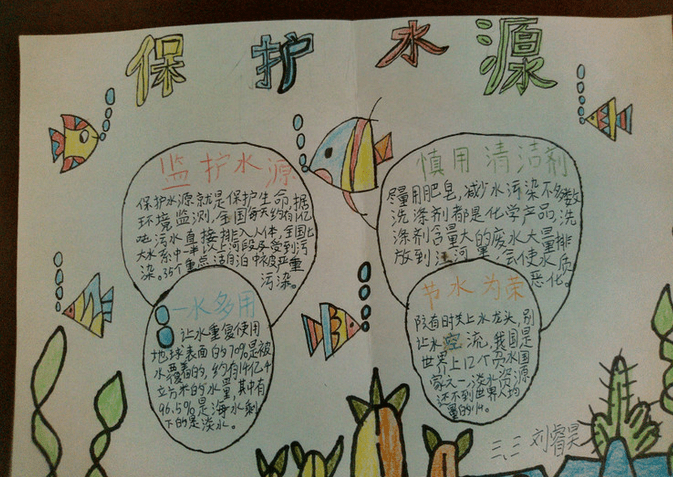 保护水源
监护水源
保护水源就是保护生命,据
环境监测,全国每天约有1亿
吨污水直接排入水体,全国七
大水系中一半以上河段受到污
染。35个重点湖泊中被严重
污染。
慎用清洁剂
尽量用肥皂,减少水污染不多数
洗涤剂都是化学产品,洗
涤剂含量大的废水大量排
放到江河里,会使水质
恶化。
一水多用
让水重复使用
地球表面的70%是被
水覆盖的,约有14亿千
立方米的水量,其中有
96.5%是海水剩
下的是淡水。
节水为荣
随时关上水龙头,别
让水空流,我国是
世界上12个贫水国
家之一,淡水资源
还不到世界人均
量的1/4。
三、三 刘睿昊